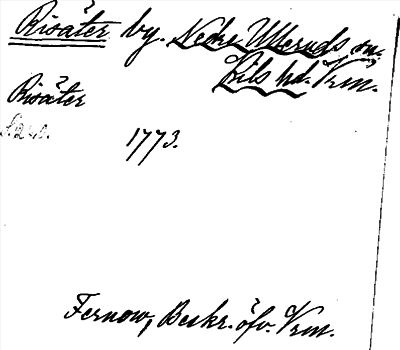 Risäter by. Nedre Ulleruds sn.
Kils hd. Vrm.
Risäter
S. 240.
1773.
Fernow, Beskr. öfv. Vrm.